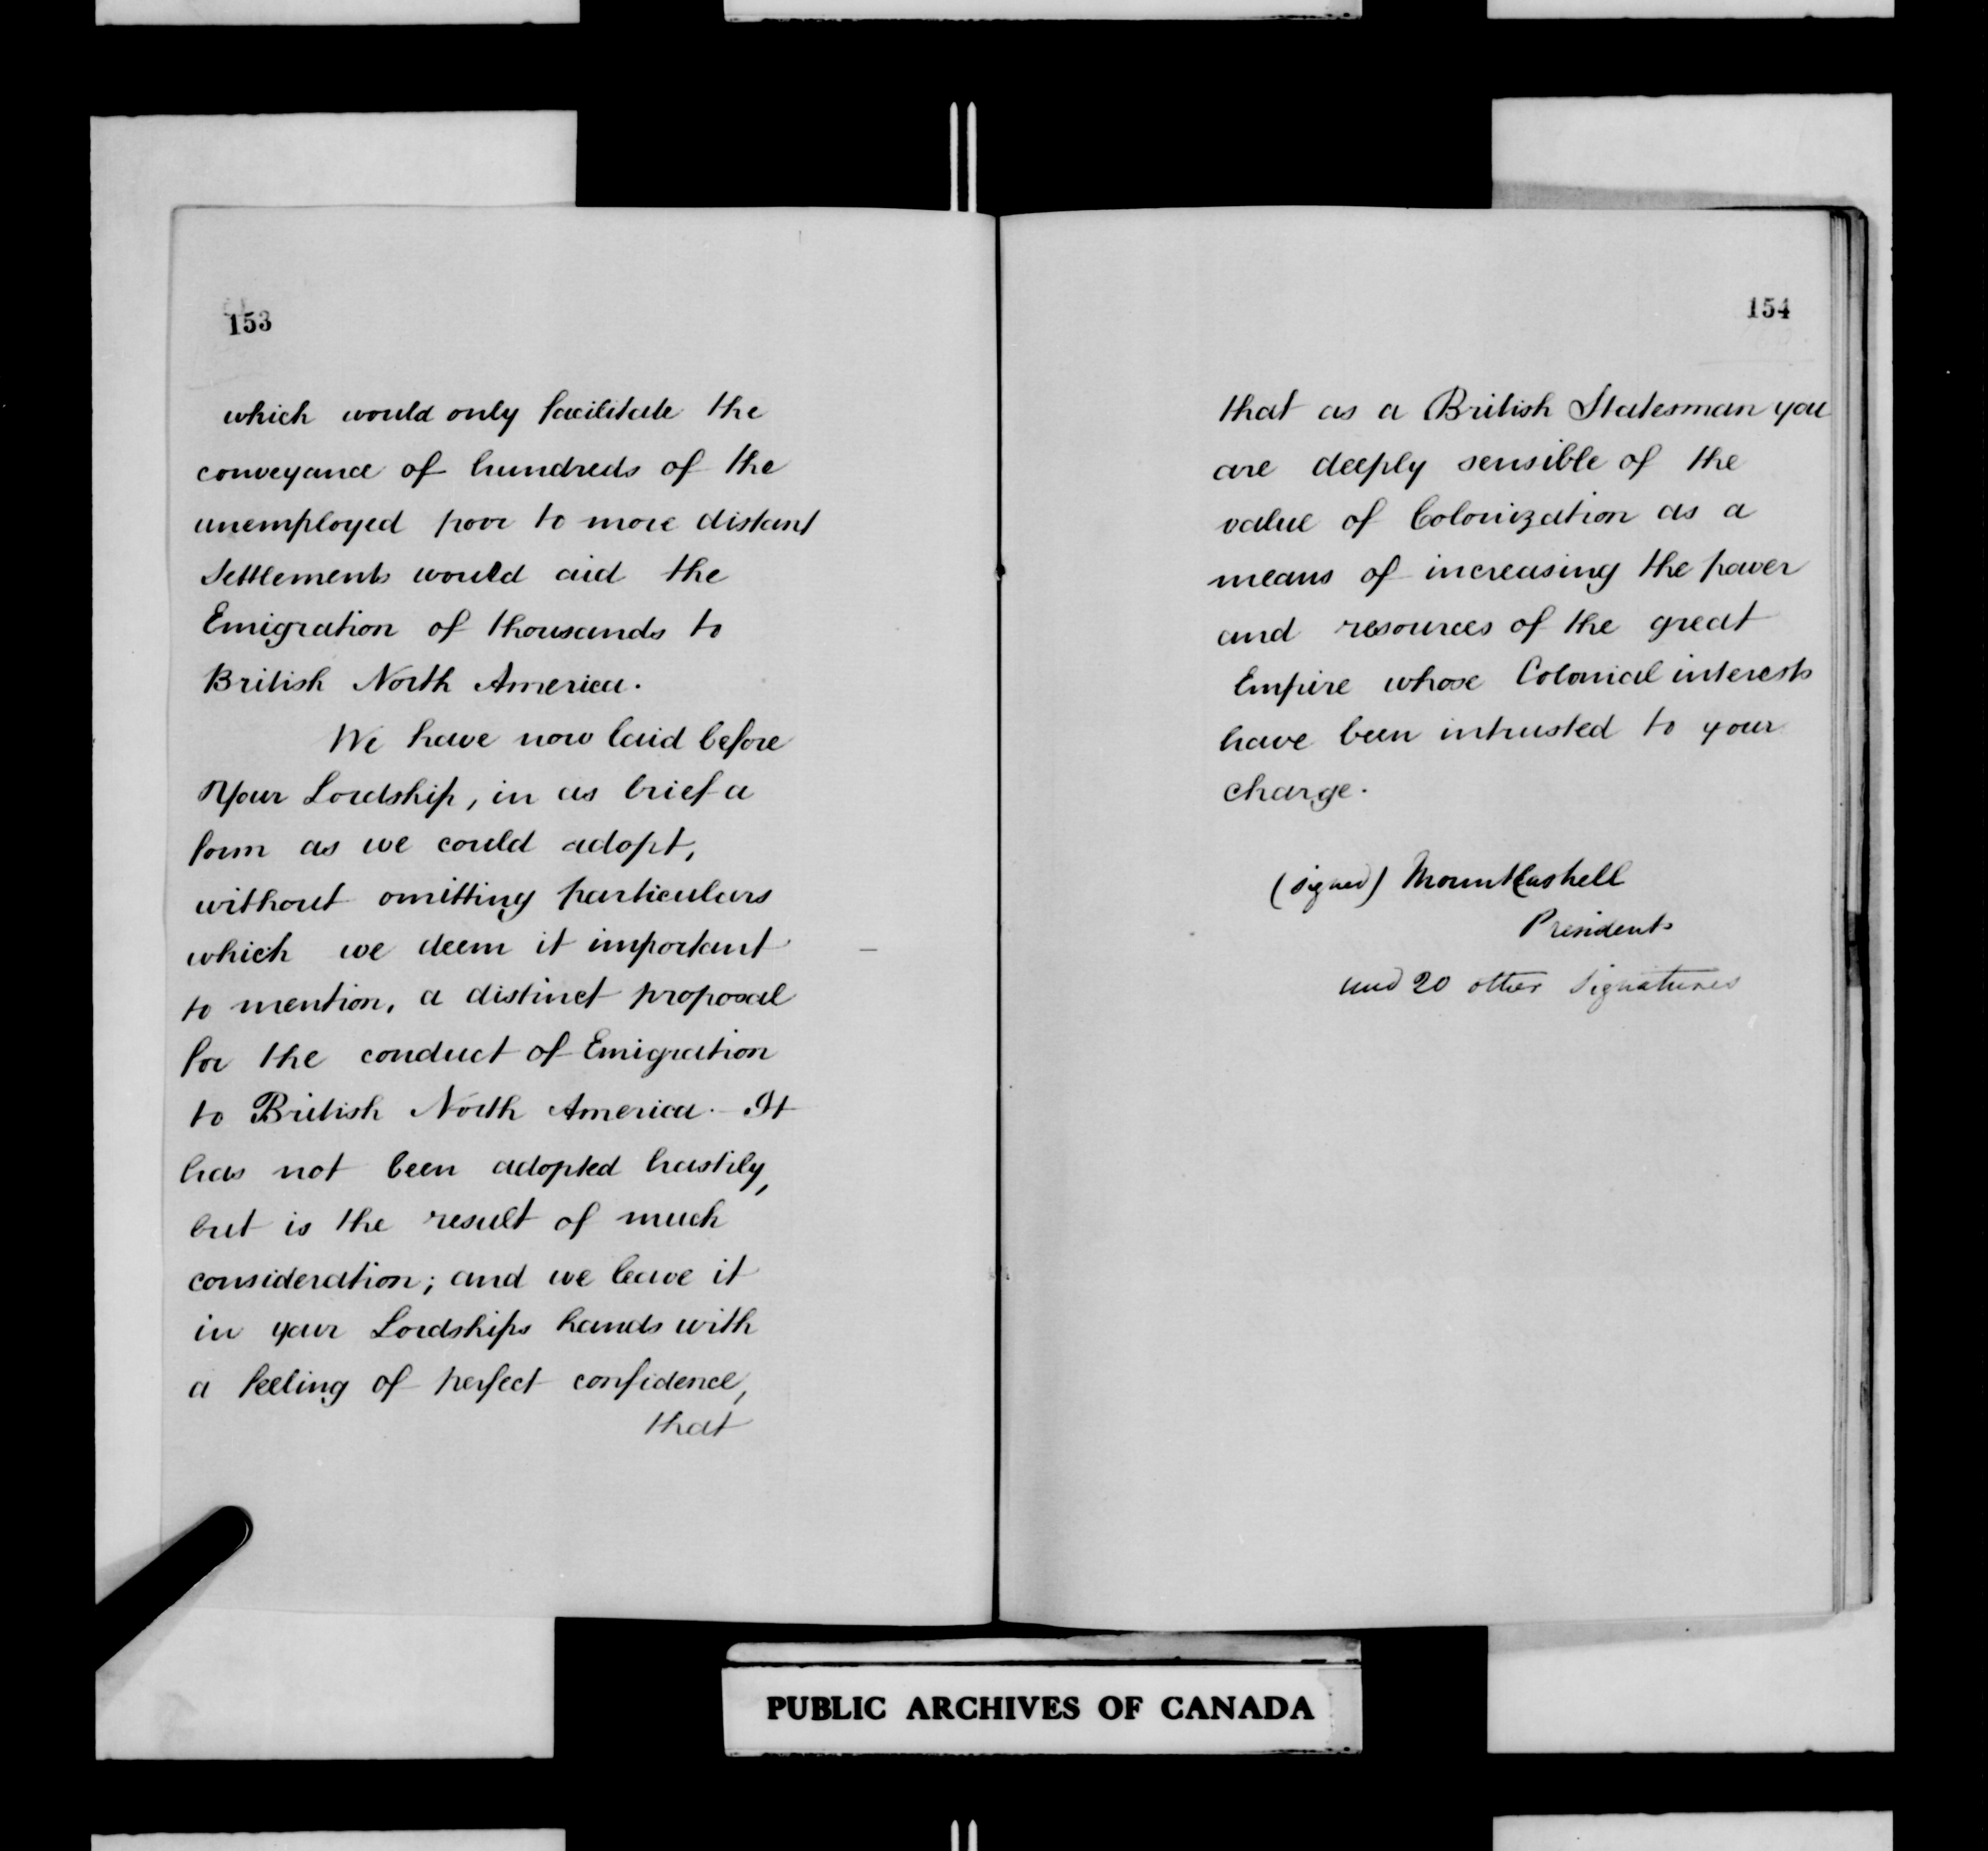 153
which would only facilitate the
conveyance of hundreds of the
unemployed poor to more distant
Settlements would aid the
Emigration of thousands to
British North America.
We have now laid before
Your Lordship, in as brief a
form as we could adopt,
without omitting particulars
which we deem it important
to mention, a distinct proposal
for the conduct of Emigration
to British North America. It
has not been adopted hastily,
but is the result of much
consideration; and we leave it
in your Lordships hands with
a feeling of perfect confidence,
that
154
that as a British Statesman you
are deeply sensible of the
value of Colonization as a
means of increasing the power
and resources of the great
Empire whose Colonial interests
have been intrusted to your
charge.
(signed) MountCashell
President
and 20 other Signatures
PUBLIC ARCHIVES OF CANADA